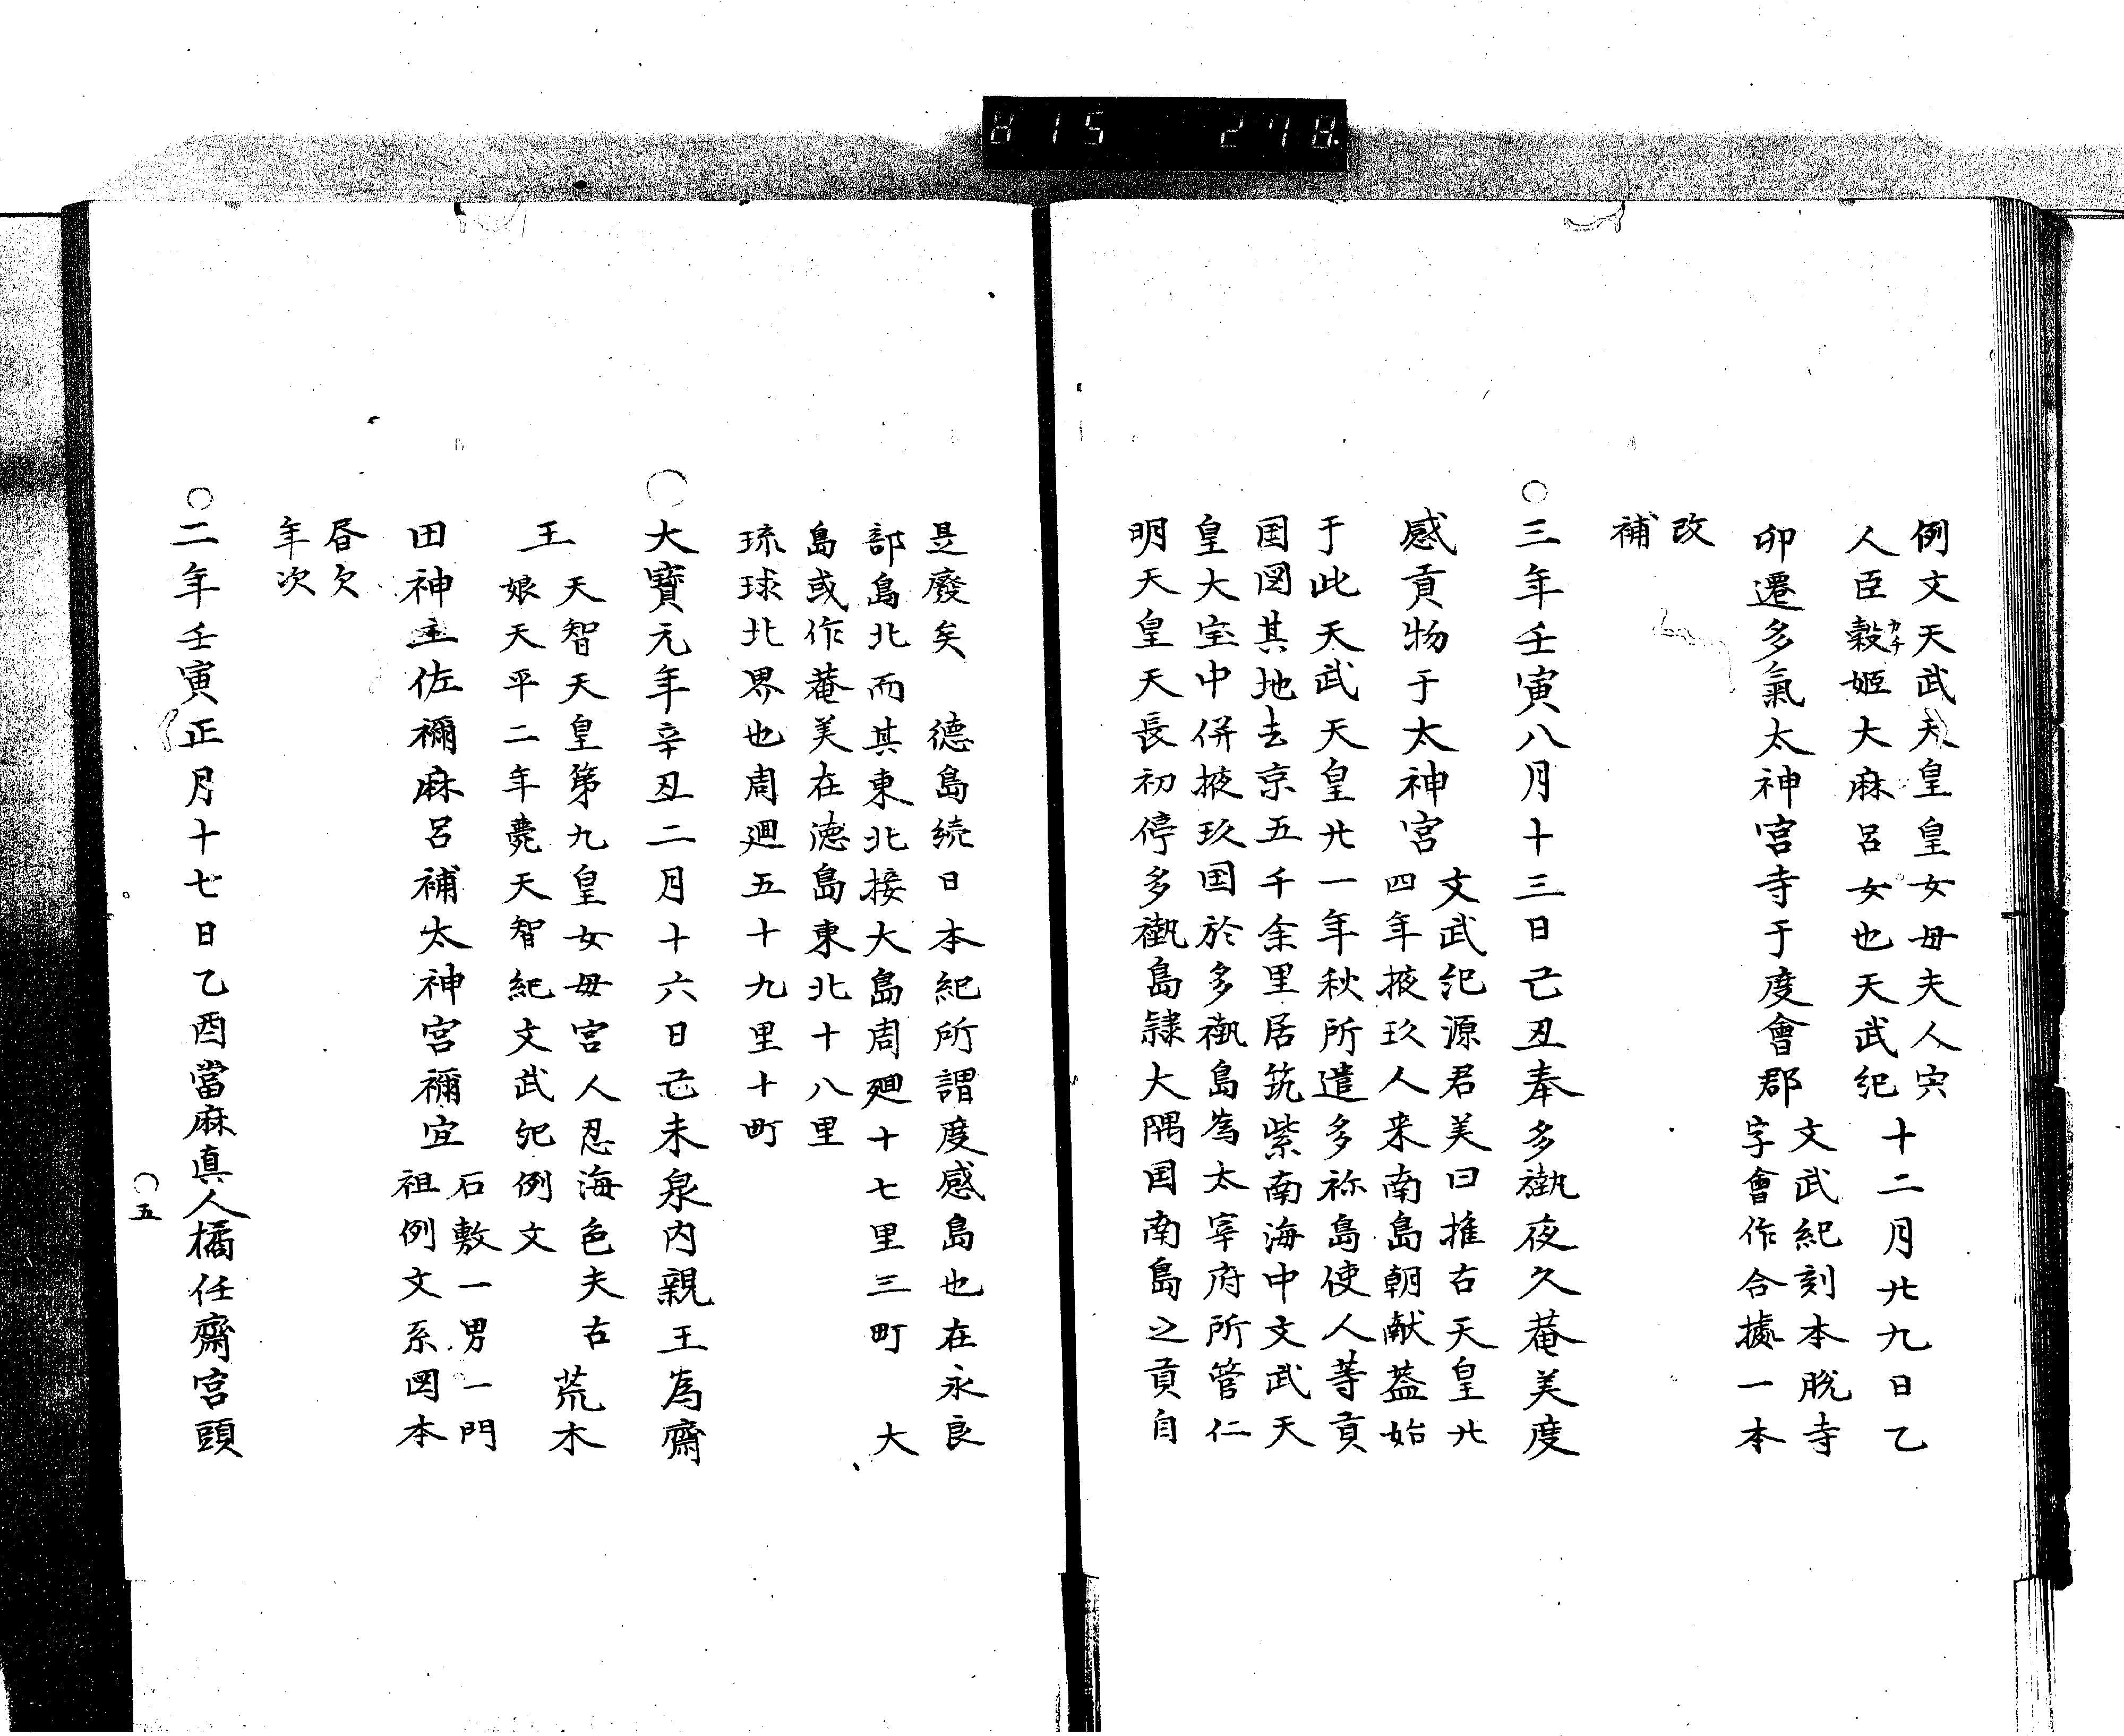 例文天武天皇皇女母夫人宍
人臣穀姫大麻呂女也天武紀
カチ
十二月廿九日乙
卯遷多氣太神宮寺于度會郡
文武紀刻本脱寺
字會作合據一本
改
補
○三年壬寅八月十三日己丑奉多褹夜久菴美度
感貢物于太神宮
文武紀源君美曰推古天皇廿
四年掖玖人来南島朝献蓋始
于此天武天皇廿一年秋所遣多祢島使人等貢
国図其地去京五千余里居筑紫南海中文武天
皇大宝中併掖玖国於多褹島為太宰府所管仁
明天皇天長初停多褹島隷大隅国南島之貢自
是廢矣 徳島続日本紀所謂度感島也在永良
部島北而其東北接大島周廻十七里三町 大
島或作菴美在徳島東北十八里
琉球北界也周廻五十九里十町
○大寶元年辛丑二月十六日己未泉内親王為齋
王
天智天皇第九皇女母宮人忍海色夫古
娘天平二年薨天智紀文武紀例文
荒木
田神主佐禰麻呂補太神宮禰宜
石敷一男一門
祖例文系図本
昏欠
年次
○二年壬寅正月十七日乙酉當麻真人橘任齋宮頭
○五
815 278